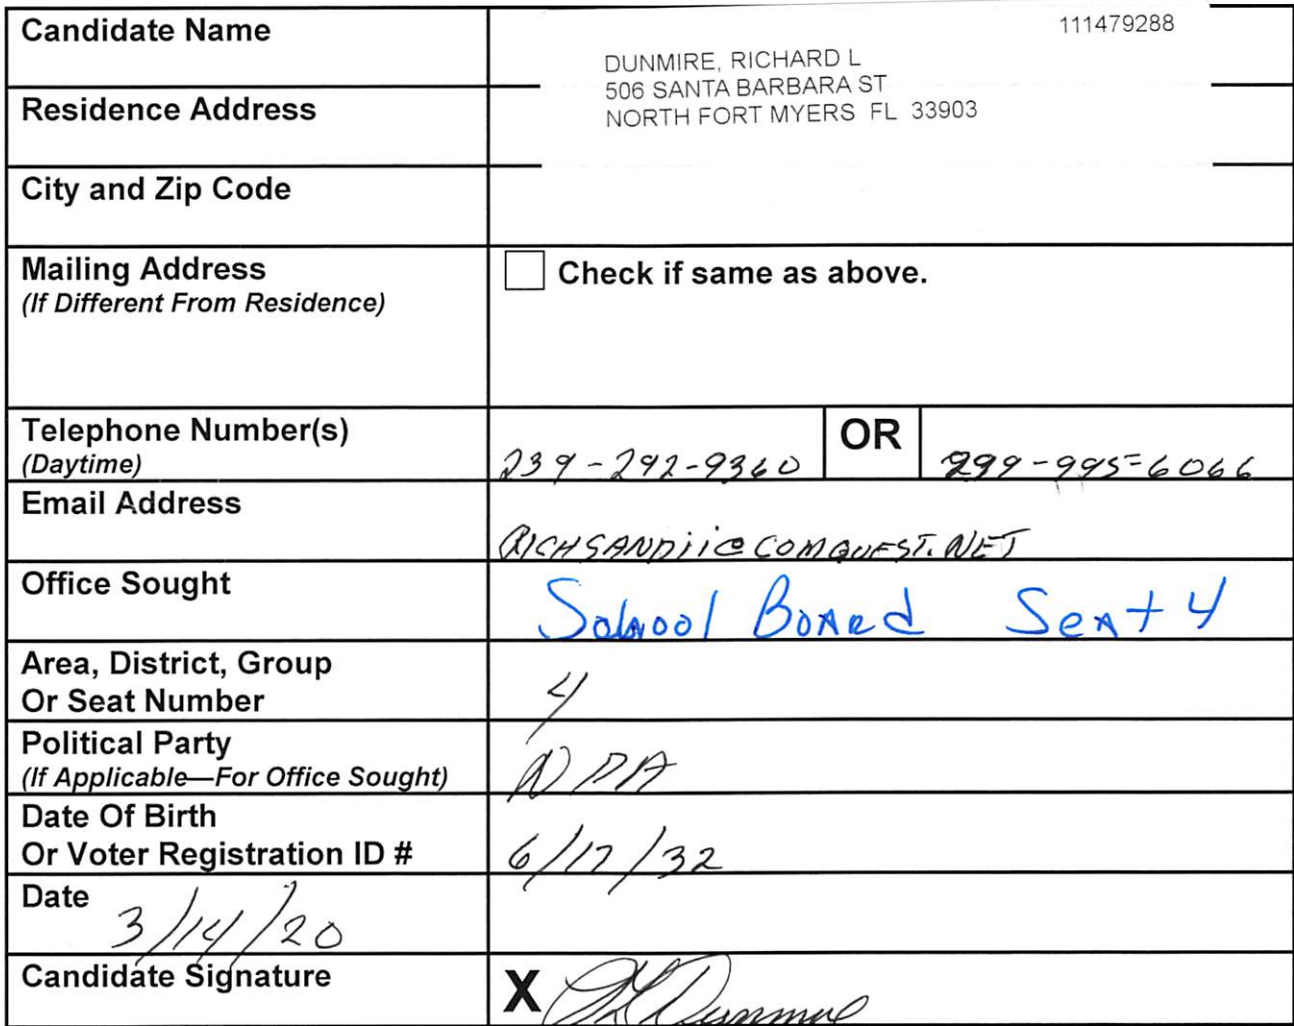 Candidate Name
111479288
DUNMIRE, RICHARD L
506 SANTA BARBARA ST
NORTH FORT MYERS FL 33903
Residence Address
City and Zip Code
Mailing Address
(If Different From Residence)
Check if same as above.
Telephone Number(s)
(Daytime)
239-292-9360
OR
239-995-6066
Email Address
RICHSANDii@COMQUEST.NET
Office Sought
School Board Seat 4
Area, District, Group
Or Seat Number
4
Political Party
(If Applicable—For Office Sought)
NPA
Date Of Birth
Or Voter Registration ID #
6/17/32
Date
3/14/20
Candidate Signature
X RL Dunmire